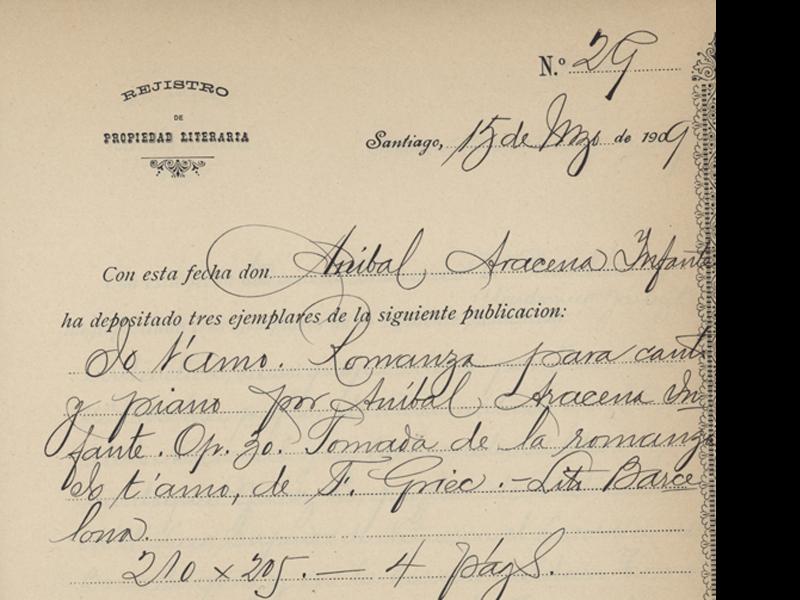 N.º 29
REJISTRO
DE
PROPIEDAD LITERARIA
Santiago, 15 de Mzo de 1909
Con esta fecha don Aníbal Aracena Infante
ha depositado tres ejemplares de la siguiente publicacion:
Io t'amo. Romanza para cant
y piano por Aníbal Aracena In
fante. Op. 30. Tomada de la romanza
Io t'amo, de F. Griec. - Lit. Barce
lona.
210 x 205. — 4 págs.